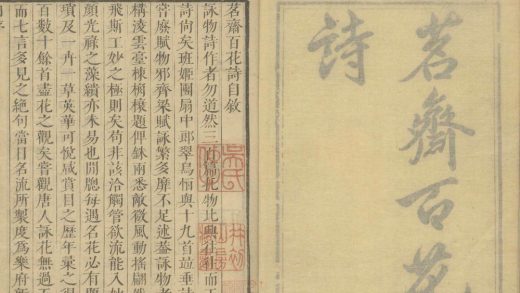 茗齋百花
詩
茗齋百花詩自敘
詠物詩作者勿道然三百篇比物比興往往而工
詩尚矣班姬團扇中郎翠鳥恓與十九首竝垂詩
嘗歷賦物邪齊梁賦詠繁多靡不足述葢詠物者
構淩雲臺棟桷榱題俾銖兩悉敵微風動搖翩然
飛斯工妙之極則矣苟非該洽觸管欲流能入妙
顔光祿之藻繢亦未易也閒聰每遇名花必有題
瑣及一卉一草英華可悅咸賞目之歷年彙之得
百數十餘首盡花之觀矣嘗觀唐人詠花無過五
而七言多見之絕句當日名流所製度爲樂府新